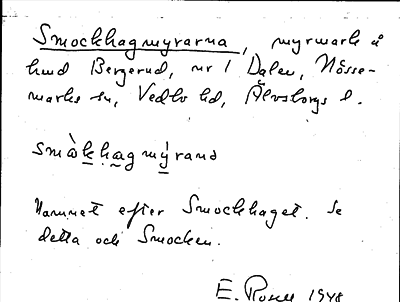 Smockhagmyrarna, myrmark å
hmd Bergerud, nr 1 Dalen, Nösse-
marks sn, Vedbo hd, Älvsborgs l.
smòkhagmýrana
Namnet efter Smockhaget. Se
detta och Smocken.
E. Rosell 1948